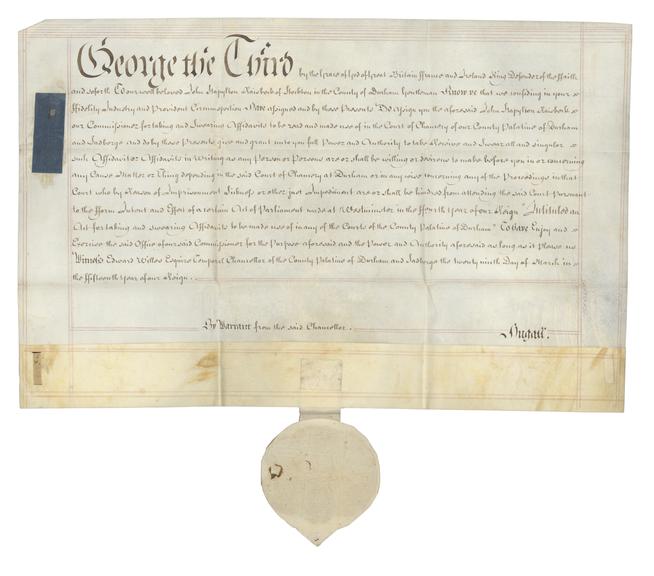 George the Third by the Grace of God of Great Britain ffrance and Ireland King Defender of the ffaith
and soforth To our well beloved John Stapylton Raisbeck of Stockton in the County of Durham Gentleman Know ye that we confiding in your
ffidelity Industry and Provident Circumspection Have assigned and by these Presents Do assign you the aforesaid John Stapylton Raisbeck
our Commissioner for taking and Swearing Affidavits to be read and made use of in the Court of Chancery of our County Palatine of Durham
and Sadberge and do by these Presents give and grant unto you full Power and Authority to take Receive and Swear all and singular
such Affidavit or Affidavits in Writing as any Person or Persons are or shall be willing or desirous to make before you in or concerning
any Cause Matter or Thing depending in the said Court of Chancery at Durham or in any wise concerning any of the Proceedings in that
Court who by Reason of Imprisonment Sickness or other just Impediment are or shall be hindred from attending the said Court pursuant
to the fform Intent and Effect of a certain Act of Parliament made at Westminster in the ffourth year of our Reign "Intituled an
Act for taking and swearing Affidavits to be made use of in any of the Courts of the County Palatine of Durham" To have Enjoy and
Exercise the said Office of our said Commissioner for the Purpose aforesaid and the Power and Authority aforesaid as long as it please us
Witness Edward Willes Esquire Temporal Chancellor of the County Palatine of Durham and Sadberge the twenty ninth Day of March in
the fifteenth Year of our Reign.
By Warrant from the said Chancellor.